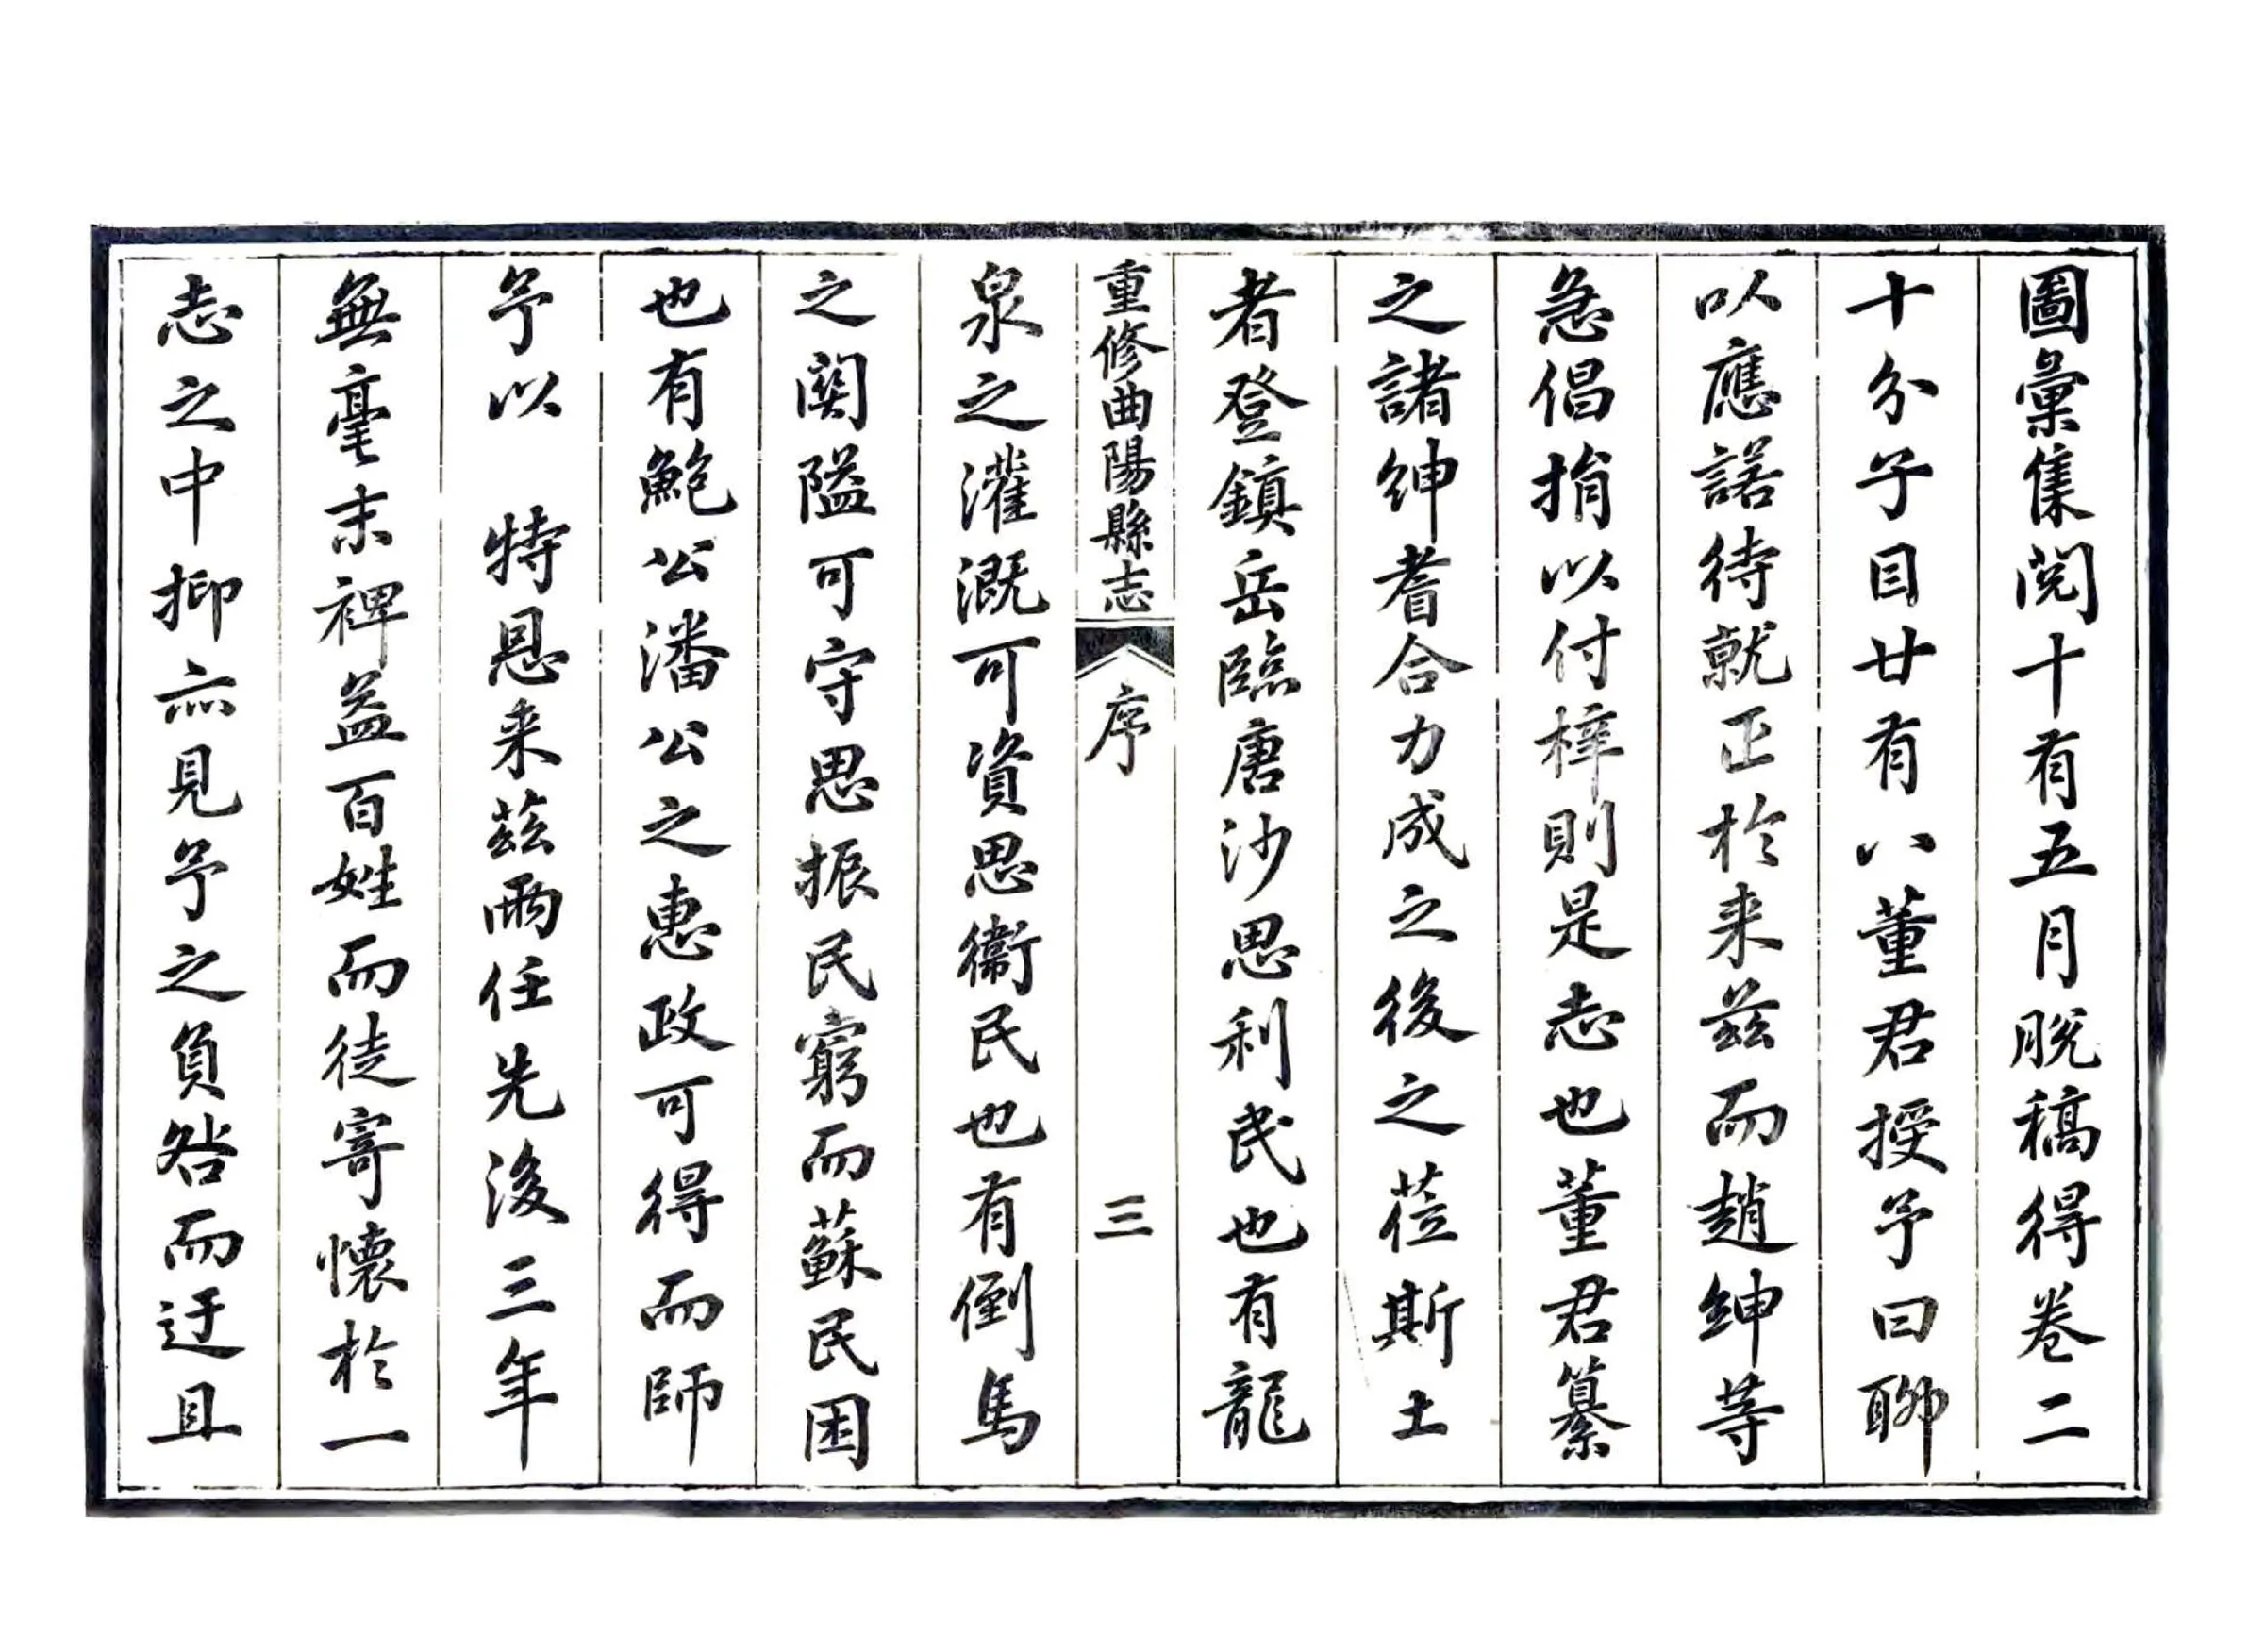 圖彙集閱十有五月脫稿得卷二
十分子目廿有八董君授予曰聊
以應諾待就正於来茲而趙紳等
急倡捐以付梓則是志也董君纂
之諸紳耆合力成之後之莅斯土
者登鎮岳臨唐沙思利民也有龍
重修曲陽縣志 序 三
泉之灌溉可資思衞民也有倒馬
之関隘可守思振民窮而蘇民困
也有鮑公潘公之惠政可得而師
予以 特恩来茲兩任先後三年
無毫末裨益百姓而徒寄懷於一
志之中抑亦見予之負咎而迂且